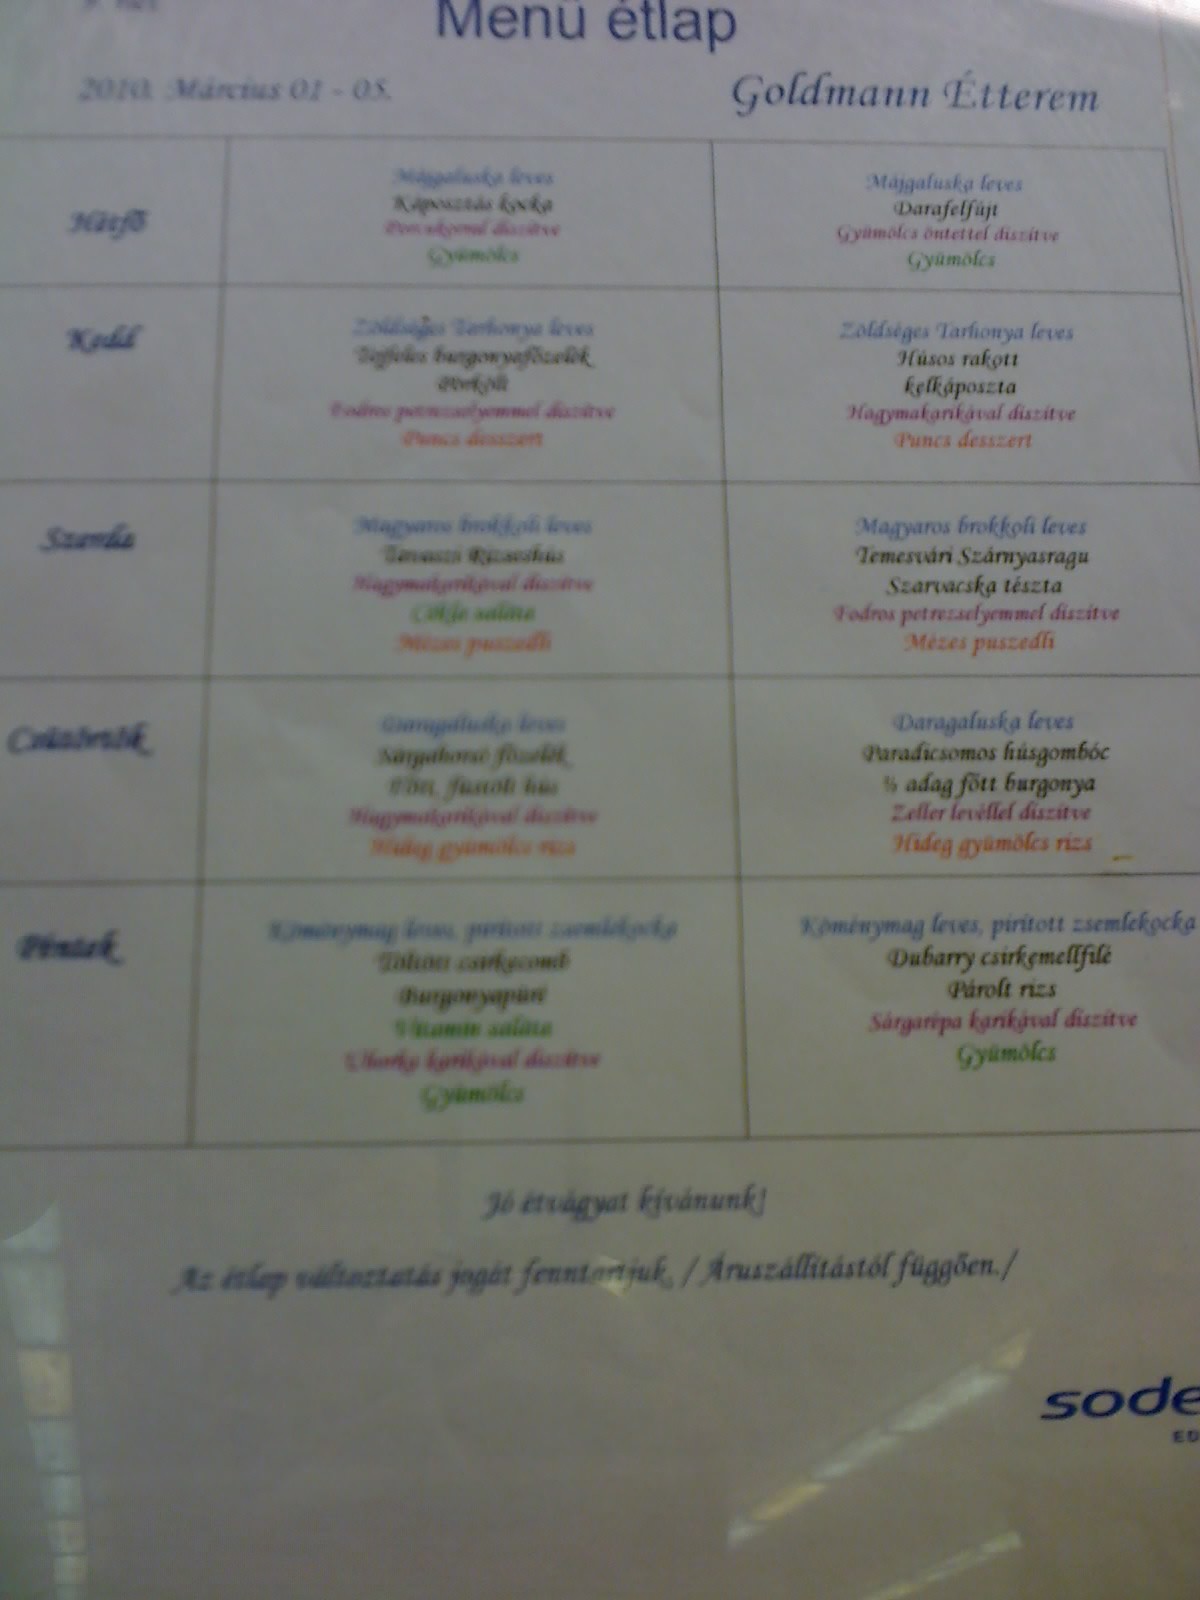 Menü étlap
2010. Március 01 - 05.
Goldmann Étterem
Hétfő
Májgaluska leves
Káposztás kocka
díszítve
Gyümölcs
Májgaluska leves
Darafelfújt
Gyümölcs öntettel díszítve
Gyümölcs
Kedd
Zöldséges Tarhonya leves
Tejfeles burgonyafőzelék
Fodros petrezselyemmel díszítve
Puncs desszert
Zöldséges Tarhonya leves
Húsos rakott
kelkáposzta
Hagymakarikával díszítve
Puncs desszert
Szerda
Magyaros brokkoli leves
Tavaszi Rizseshús
Hagymakarikával díszítve
Cékla saláta
Mézes puszedli
Magyaros brokkoli leves
Temesvári Szárnyasragu
Szarvacska tészta
Fodros petrezselyemmel díszítve
Mézes puszedli
Csütörtök
Daragaluska leves
Sárgaborsó főzelék
Főtt, füstölt hús
Hagymakarikával díszítve
Hideg gyümölcs rizs
Daragaluska leves
Paradicsomos húsgombóc
½ adag főtt burgonya
Zeller levéllel díszítve
Hideg gyümölcs rizs
Péntek
Köménymag leves, pirított zsemlekocka
Töltött csirkecomb
Burgonyapüré
Vitamin saláta
Uborka karikával díszítve
Gyümölcs
Köménymag leves, pirított zsemlekocka
Dubarry csirkemellfilé
Párolt rizs
Sárgarépa karikával díszítve
Gyümölcs
Jó étvágyat kívánunk!
Az étlap változtatás jogát fenntartjuk. / Áruszállítástól függően./
sode
ED